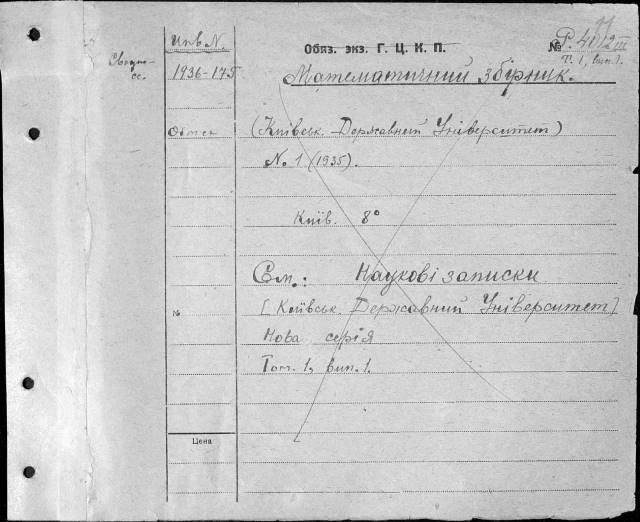 Инв N.
1936-175
Обмен
Обяз. экз. Г. Ц. К. П.
№ P. 40/2 III
T. 1, вип. 1.
Математичний збірник.
(Київськ. Державний Університет)
No 1 (1935).
Київ. 8°
См.: Наукові записки
[Київськ. Державний Університет]
Нова серія
Том. 1, вип. 1.
№
Цена